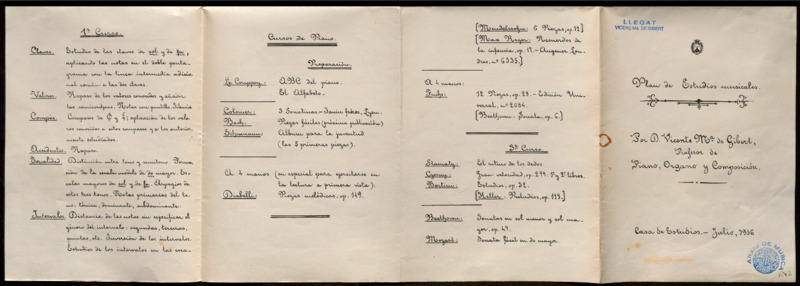 1er Curso.
Claves. Estudio de las claves de sol y de fa,
aplicando las notas en el doble penta-
grama con la línea intermedia adicio-
nal común a las dos claves.
Valores. Repaso de los valores conocidos y añadir
las semicorcheas. Notas con puntillo. Síncopa
Compás. Compases de
aplicación de los valo-
res conocidos a estos compases y a los anterior-
mente estudiados.
Accidentes. Repaso.
Tonalidad. Distinción entre tono y semitono. Forma-
ción de la escala modelo de do mayor. Es-
calas mayores de sol y de fa. Arpegios de
estos tres tonos. Notas primarias del to-
no: tónica, dominante, subdominante.
Intervalos. Distancia de las notas sin especificar el
género del intervalo: segundas, terceras,
quintas, etc. Inversión de los intervalos.
Estudio de los intervalos en las esca-
Cursos de Piano.
Preparación.
Le Couppey: ABC del piano.
El Alfabeto.
3 Sonatinas
Bach: Piezas fáciles (próxima publicación)
Schumann: Álbum para la juventud
(las 8 primeras piezas).
A 4 manos (en especial para ejercitarse en
la lectura a primera vista).
Diabelli: Piezas melódicas, op. 149.
[Mendelssohn: 6 Piezas, op. 72]
[Max Reger: Recuerdos de
la infancia, op. 17.- Augener, Lon-
dres, nº 6335.]
A 4 manos:
Fuchs: 12 Piezas, op. 28.- Edición Uni-
versal, nº 2084.
[Beethoven: Sonata, op. 6.]
Stamaty: El ritmo de los dedos.
Czerny: Gran velocidad, op. 299: 1º y 2º libros.
Bertini: Estudios, op. 32.
[Heller: Preludios, op. 119.]
Beethoven: Sonatas en sol menor y sol ma-
yor, op. 49.
Mozart: Sonata fácil en do mayor.
LLEGAT
VICENÇ Mª DE GIBERT
Plan de Estudios musicales.
Por D. Vicente Mª de Gibert,
Profesor de
Piano, Órgano y Composición.
Casa de Estudios.- Julio, 1936